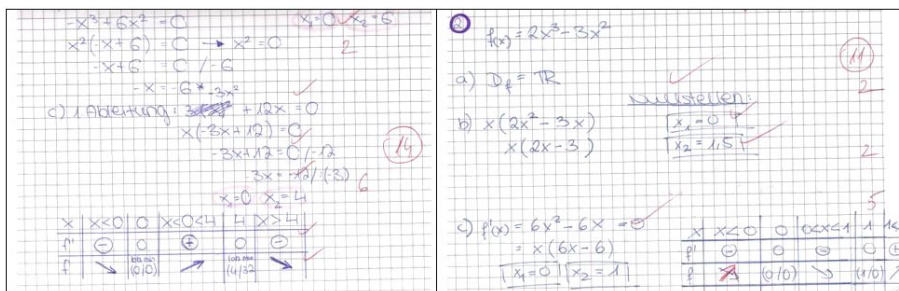 -x³ + 6x² = 0 x₁=0 x₂=6
x²(-x+6) = 0 → x² = 0
2
-x+6 = 0 /-6
-x = -6
c) 1 Ableitung: -3x² + 12x = 0
x(-3x+12) = 0
-3x+12 = 0 /-12
14
6
x₁=0 x₂=4
x | x<0 | 0 | x<0<4 | 4 | x>4
f' | ⊖ | 0 | ⊕ | 0 | ⊖
f | ↘ | (0/0) | ↗ | (4/32 | ↘
2
f(x) = 2x³ - 3x²
11
a) D_f = ℝ
2
Nullstellen:
b) x(2x² - 3x) x₁=0
x(2x-3) x₂=1,5
2
5
c) f'(x) = 6x² - 6x = 0
= x(6x-6)
x₁=0 x₂=1
x | x<0 | 0 | 0<x<1 | 1 | 1<
f' | ⊖ | 0 | ⊖ | 0 | ⊕
f | (0/0) | ↘ | (1/0) | ↗